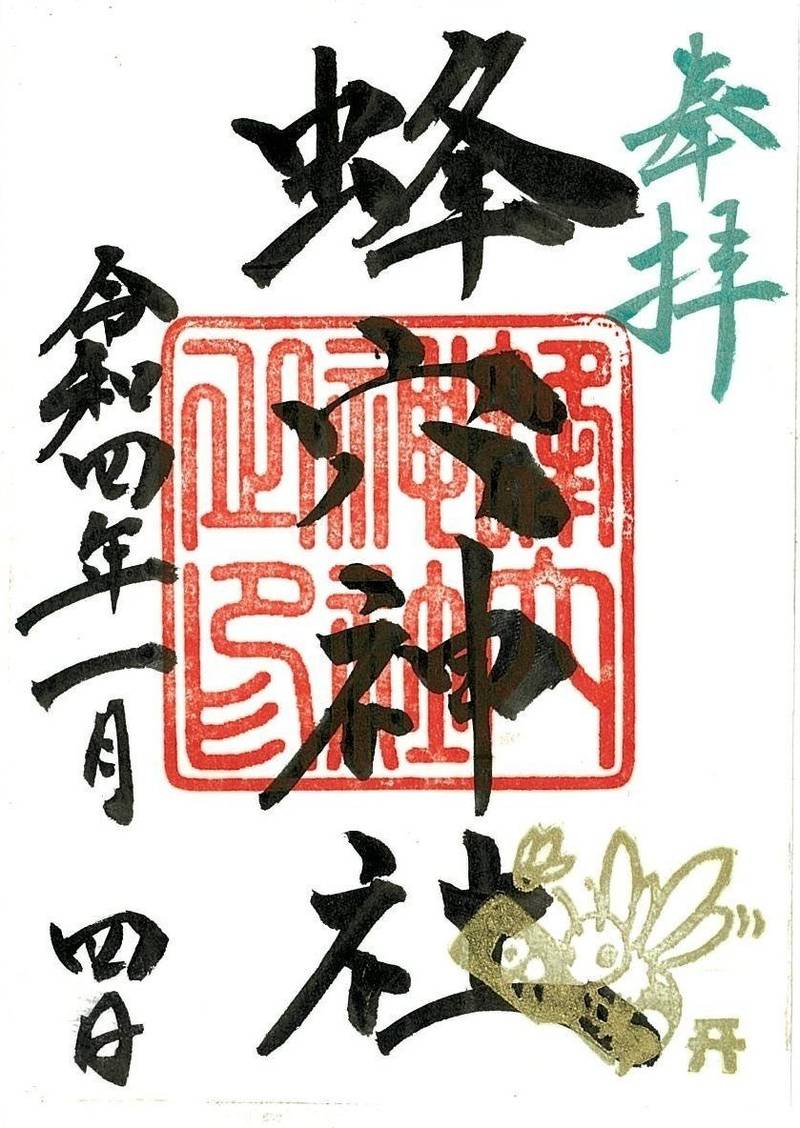 奉拝
蜂穴神社
蜂穴
神社
之印
令和四年一月 四日